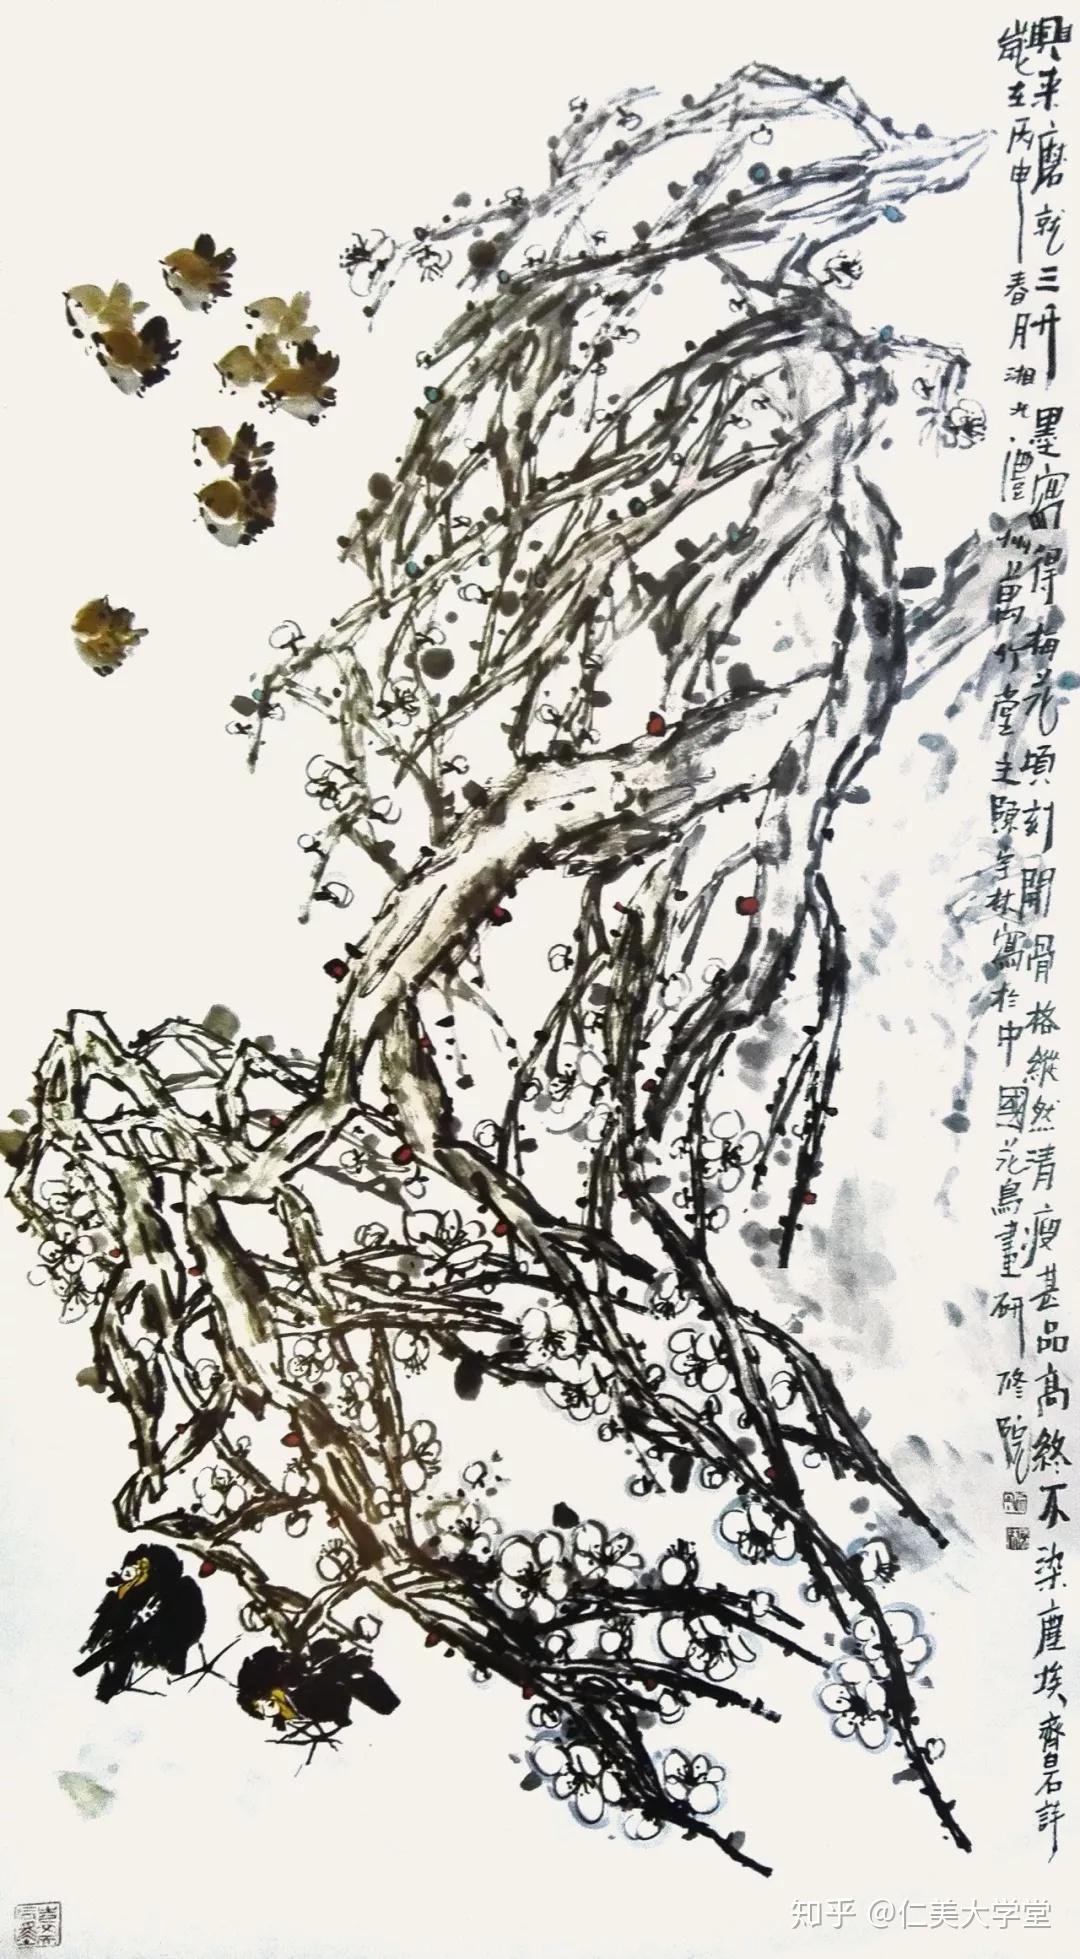 興来磨就三升墨寫得梅花頃刻開骨格縱然清瘦甚品高煞不染塵埃齊白石詩
歲在丙申春月湘九澧州萬竹堂主林寫於中國花鳥畫研修院
知乎 @仁美大学堂